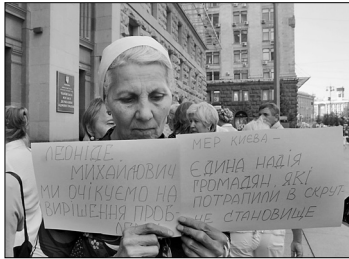 ЛЕОНІДЕ
МИХАЙЛОВИЧ
МИ ОЧІКУЄМО НА
ВИРІШЕННЯ ПРОБ-
МЕР КИЄВА –
ЄДИНА НАДІЯ
ГРОМАДЯН, ЯКІ
ПОТРАПИЛИ В СКРУТ-
НЕ СТАНОВИЩЕ